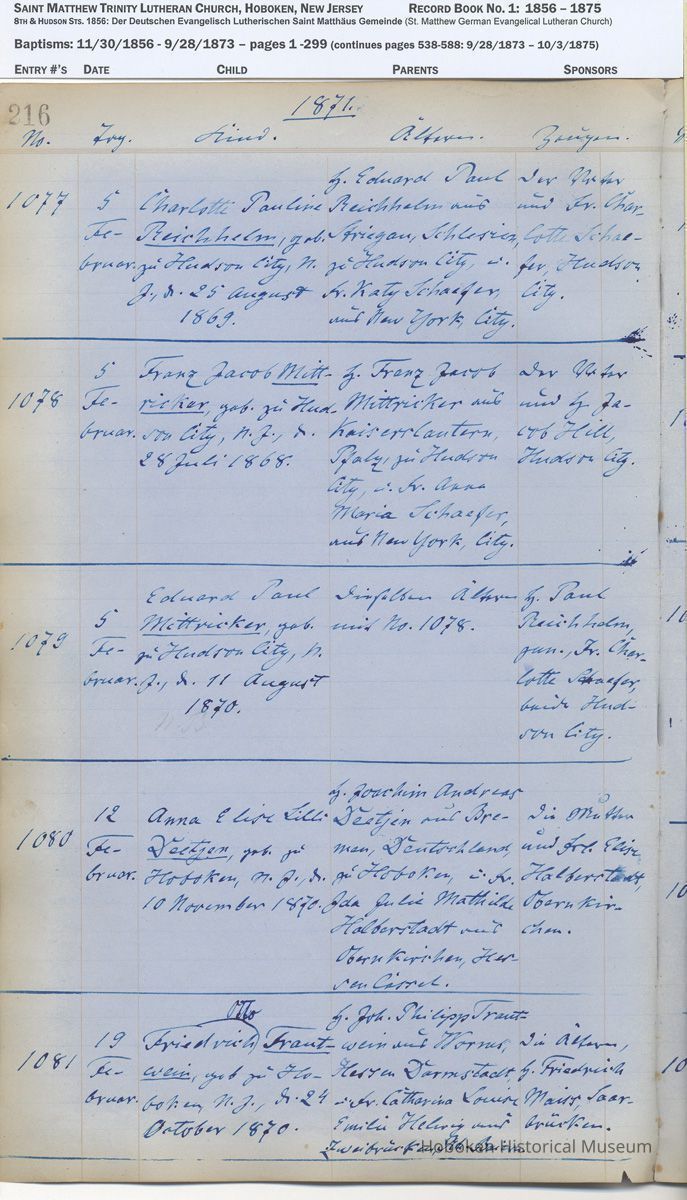 SAINT MATTHEW TRINITY LUTHERAN CHURCH, HOBOKEN, NEW JERSEY RECORD BOOK NO. 1: 1856 – 1875
8TH & HUDSON STS. 1856: Der Deutschen Evangelisch Lutherischen Saint Matthäus Gemeinde (St. Matthew German Evangelical Lutheran Church)
Baptisms: 11/30/1856 - 9/28/1873 – pages 1 -299 (continues pages 538-588: 9/28/1873 – 10/3/1875)
ENTRY #'S DATE CHILD PARENTS SPONSORS
216
1871.
No. Tag. Kind. Ältern. Zeugen.
1077
5
Fe-
bruar.
Charlotte Pauline
Reichhelm, geb.
zu Hudson City, N.
J., d. 25 August
1869.
H. Eduard Paul
Reichhelm aus
Striegau, Schlesien,
zu Hudson City, u.
Fr. Katy Schaefer,
aus New York, City.
Der Vater
und Fr. Char-
lotte Schae-
fer, Hudson
City.
1078
5
Fe-
bruar.
Franz Jacob Mitt-
ricker, geb. zu Hud-
son City, N. J., d.
28 Juli 1868.
H. Franz Jacob
Mittricker aus
Kaiserslautern,
Pfalz, zu Hudson
City, u. Fr. Anna
Maria Schaefer,
aus New York, City.
Der Vater
und H. Ja-
cob Hill,
Hudson City.
1079
5
Fe-
bruar.
Eduard Paul
Mittricker, geb.
zu Hudson City, N.
J., d. 11 August
1870.
Dieselben Ältern
wie No. 1078.
H. Paul
Reichhelm,
sen., Fr. Char-
lotte Schaefer,
beide Hud-
son City.
1080
12
Fe-
bruar.
Anna Elise Lilli
Deetjen, geb. zu
Hoboken, N. J., d.
10 November 1870.
H. Joachim Andreas
Deetjen aus Bre-
men, Deutschland,
zu Hoboken, u. Fr.
Ida Julie Mathilde
Halberstadt aus
Obernkirchen, Hes-
sen Cassel.
Die Mutter
und Frl. Elise
Halberstadt,
Obernkir-
chen.
1081
19
Fe-
bruar.
Otto
Friedrich Traut-
wein, geb zu Ho-
boken, N. J., d. 24
October 1870.
H. Joh. Philipp Traut-
wein aus Worms,
Hessen Darmstadt,
u. Fr. Catharina Louise
Emilie Helwig aus
Zweibrücken,
Die Ältern,
H. Friedrich
Maiss, Saar-
brücken.
Hoboken Historical Museum